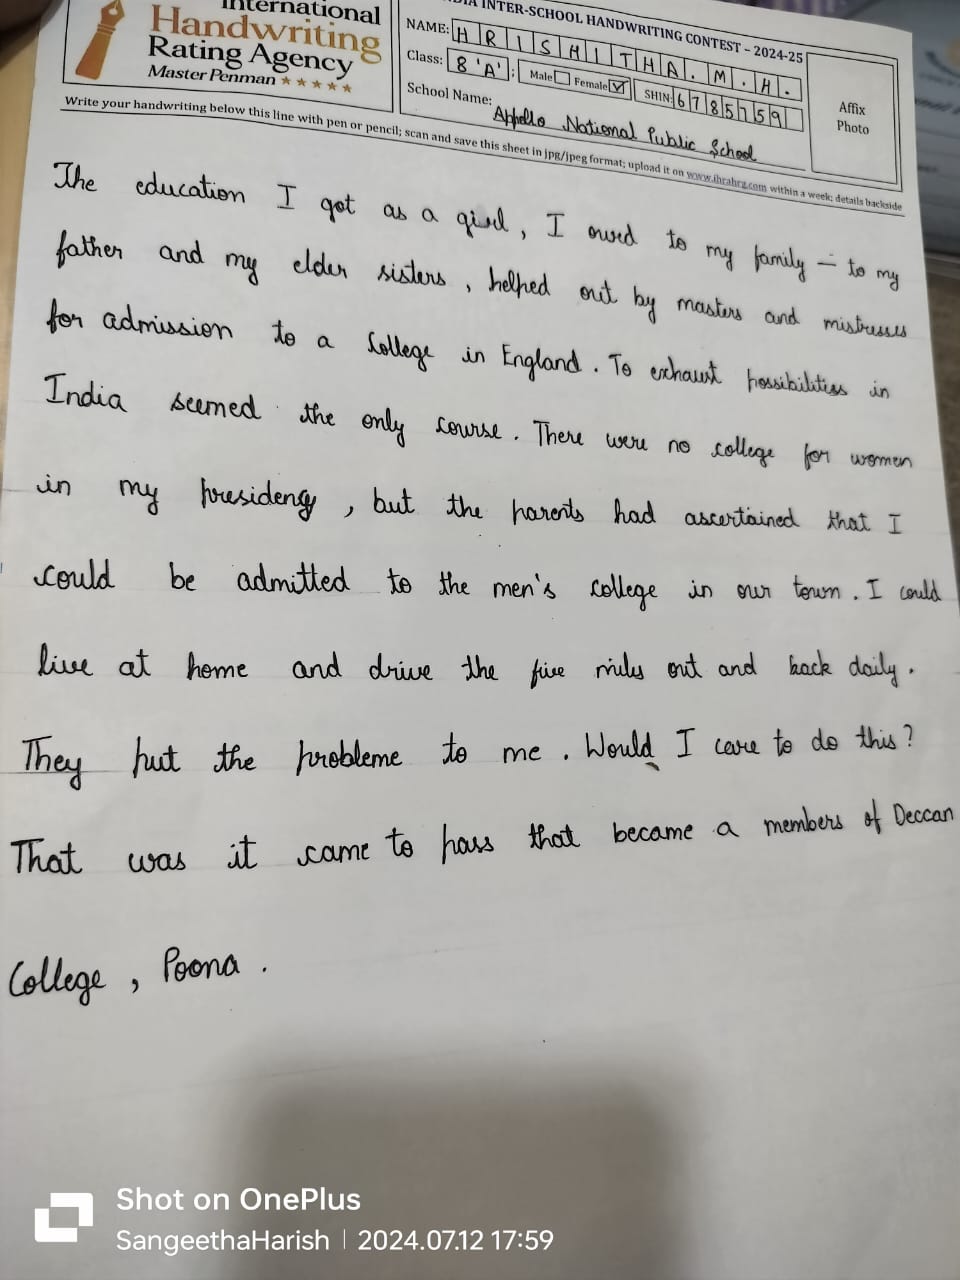 International
Handwriting
Rating Agency
Master Penman ★★★★★
INTER-SCHOOL HANDWRITING CONTEST - 2024-25
NAME: HRISHITHA.M.H.
Class: 8 'A' Male Female ✓ SHIN: 6785759
School Name: Appollo National Public School
Affix
Photo
Write your handwriting below this line with pen or pencil; scan and save this sheet in jpg/jpeg format; upload it on www.ihrahrg.com within a week; details backside
The education I got as a girl, I owed to my family – to my
father and my elder sisters, helped out by masters and mistresses
for admission to a College in England. To exhaust possibilities in
India seemed the only course. There were no college for women
in my presidency, but the parents had ascertained that I
could be admitted to the men's college in our town. I could
live at home and drive the five miles out and back daily.
They put the probleme to me. Would I care to do this?
That was it came to pass that became a members of Deccan
College, Poona.
Shot on OnePlus
SangeethaHarish | 2024.07.12 17:59